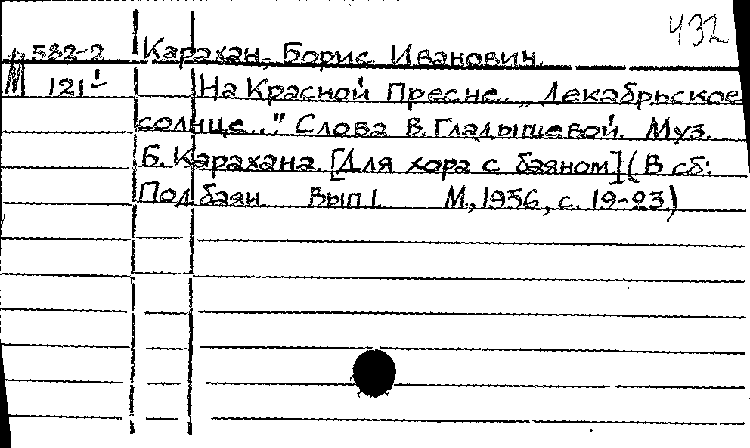 432
М 582-2 Карахан, Борис Иванович.
121 На Красной Пресне. „Декабрьское
солнце.." Слова В. Гладышевой. Муз.
Б. Карахана. [Для хора с баяном] (В сб:
Под баян Вып 1. М., 1956, с. 19-23)